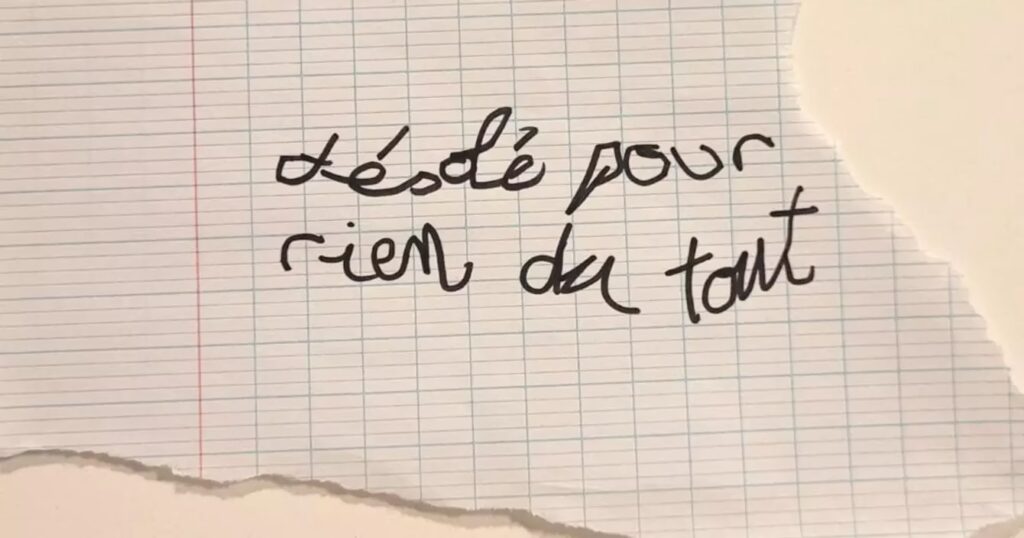 désolé pour
rien du tout